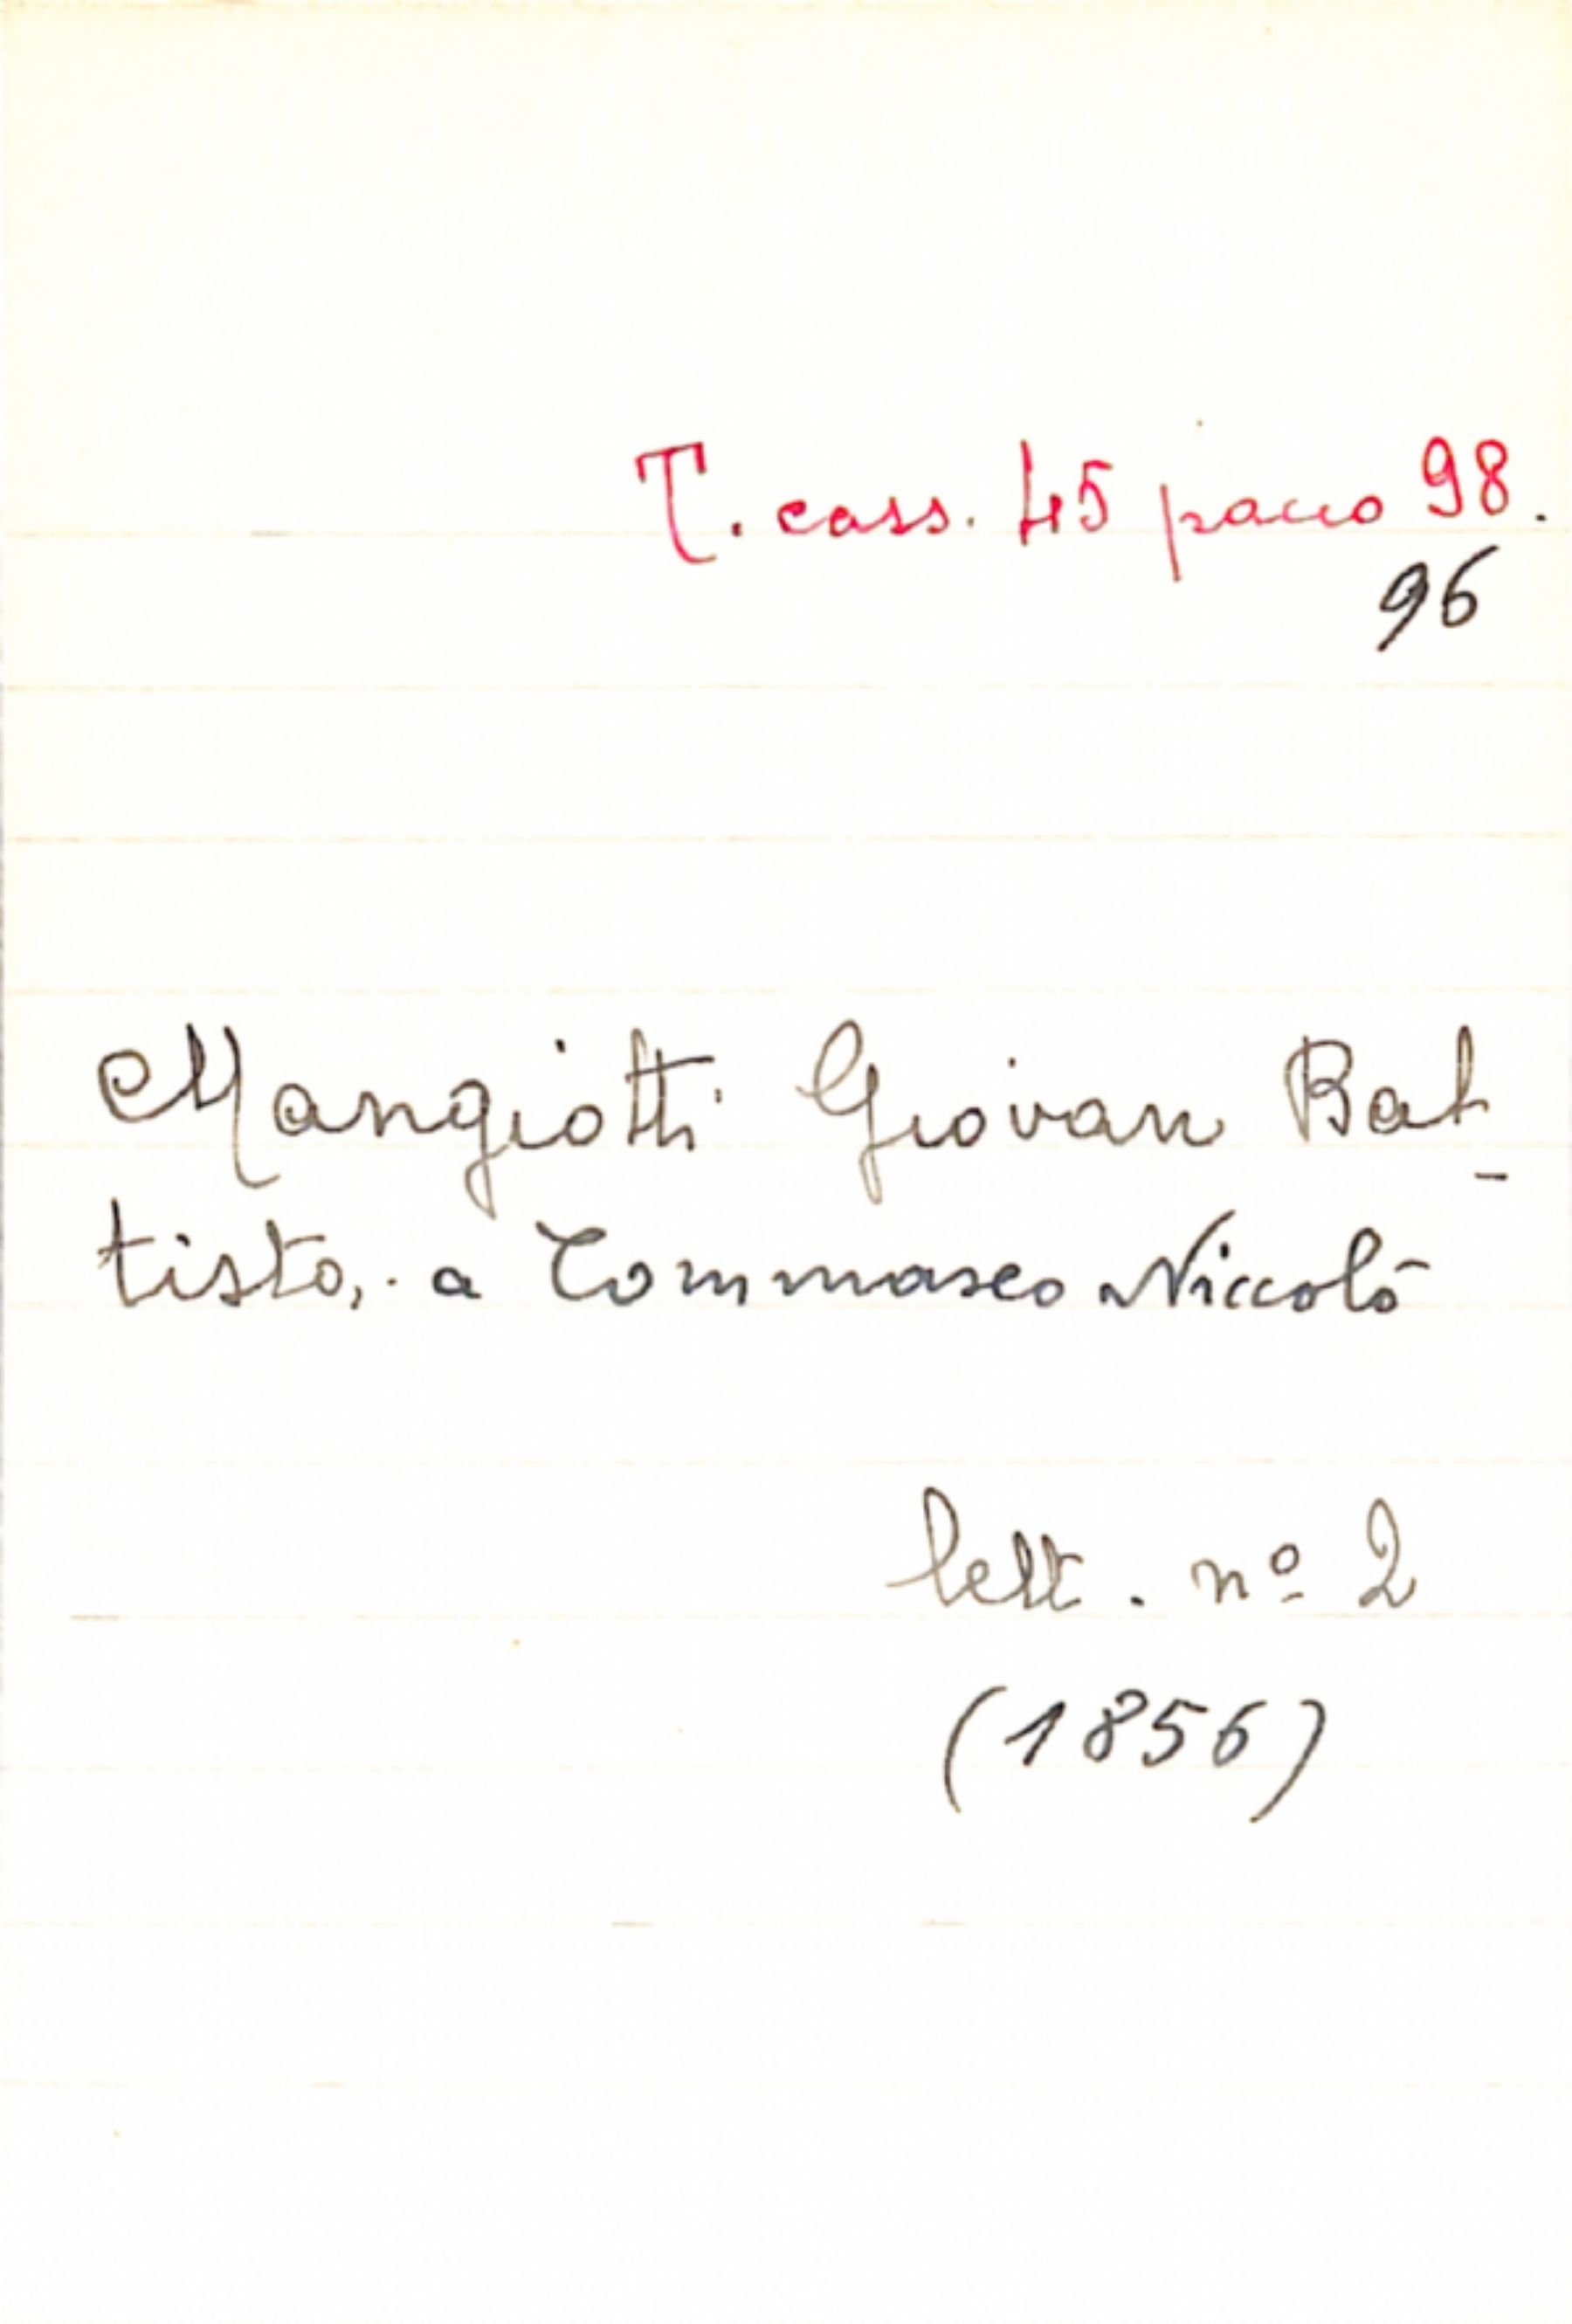 T. cass. 45 pacco 98.
96
Mangiotti Giovan Bat-
tista, a Tommaseo Niccolò
lett. nº 2
(1856)